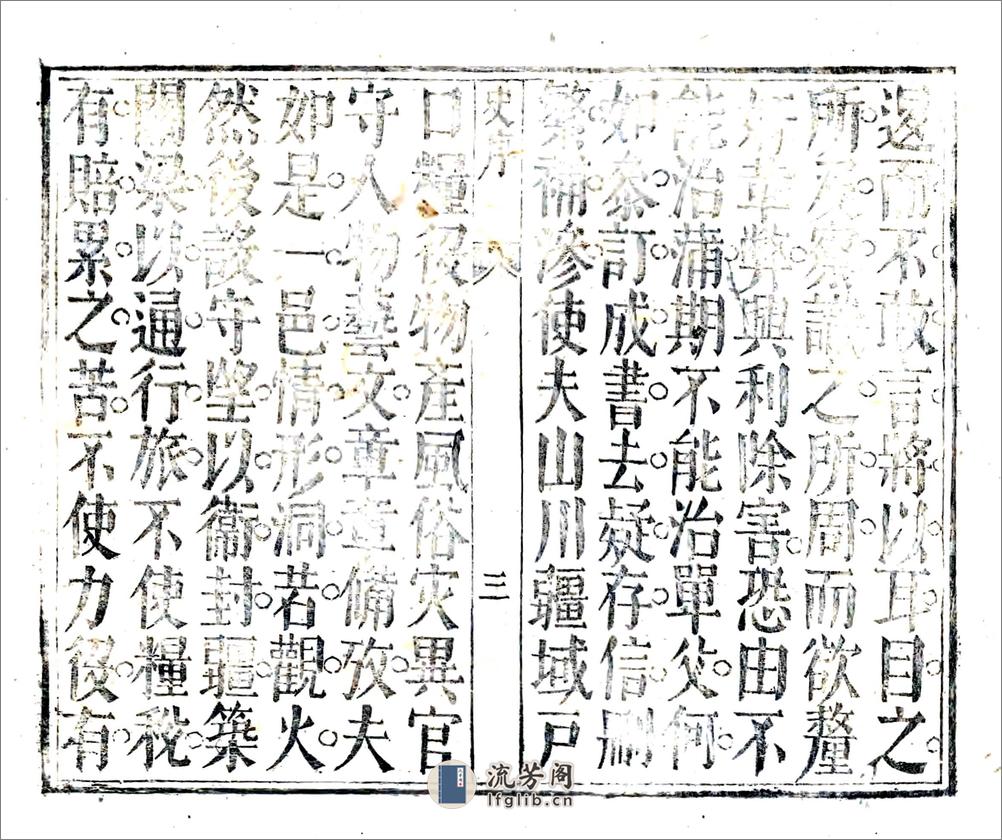 而不敢言將以耳目之
所及察識之所周而欲釐
奸革弊興利除害恐由不
能治蒲期不能治單父何
如參訂成書去疑存信刪
繁補滲使夫山川疆域戶
史序 三
口糧役物產風俗灾異官
守人物藝文章章備攷夫
如是一邑情形洞若觀火
然後設守以衞封疆築
關梁以通行旅不使糧稅
有賠累之苦不使力役有
流芳阁
lfglib.cn